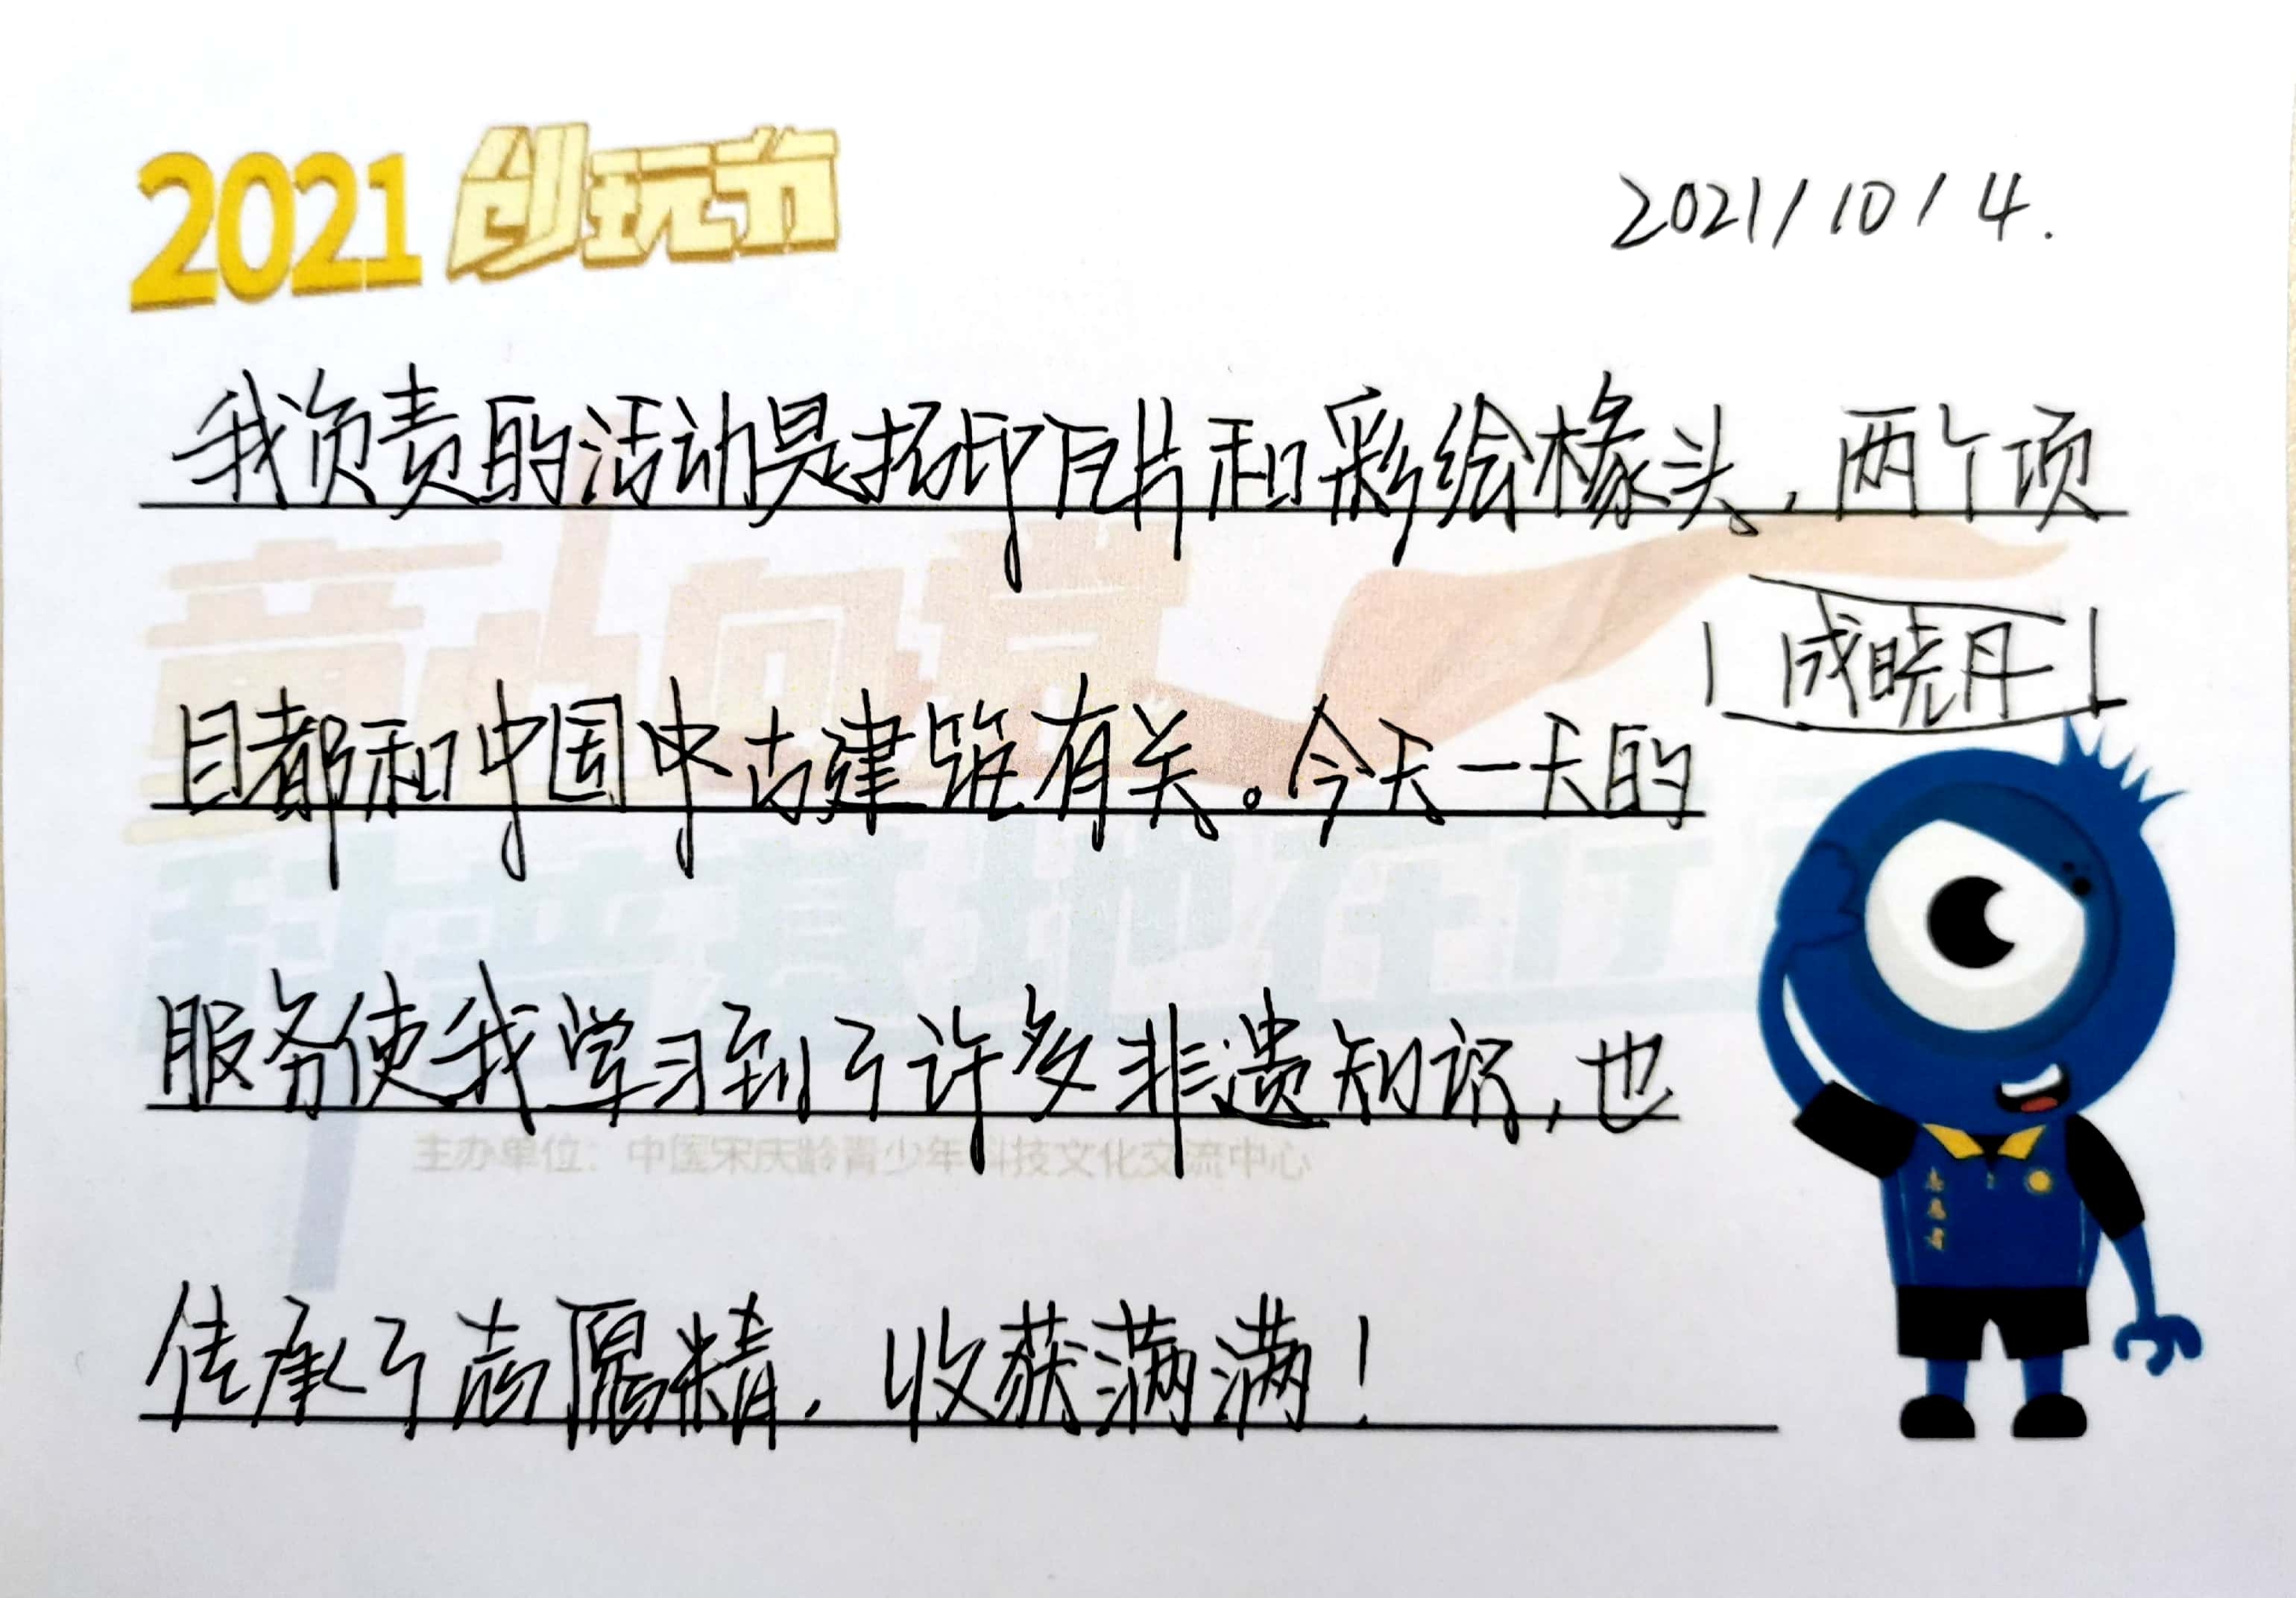 2021 创玩节
2021/10/4.
我负责的活动是拓印瓦片和彩绘椽头，两个项
成晓丹
目都和中国中古建筑有关。今天一天的
服务使我学习到了许多非遗知识，也
传承了志愿精，收获满满！
童心向党
科普基地在行
主办单位：中国宋庆龄青少年科技文化交流中心
志愿者